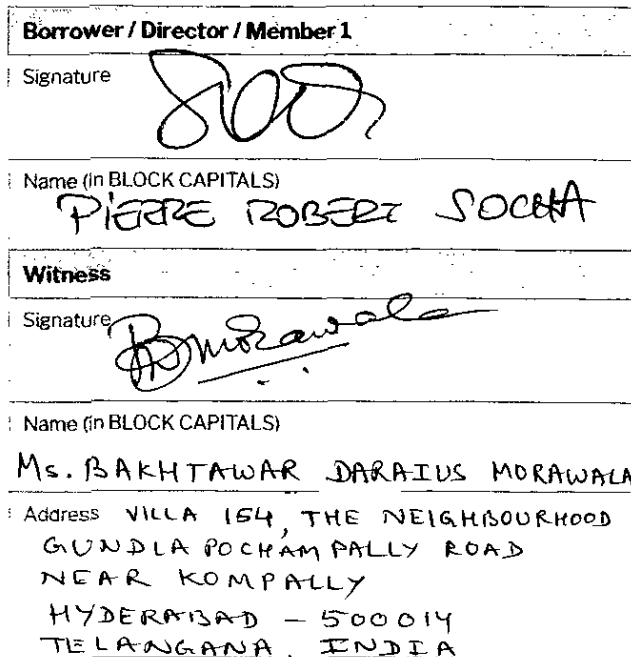 Borrower / Director / Member 1
Signature
Name (in BLOCK CAPITALS)
PIERRE ROBERT SOCHA
Witness
Signature
BDMorawala
Name (in BLOCK CAPITALS)
Ms. BAKHTAWAR DARAIUS MORAWALA
Address VILLA 154, THE NEIGHBOURHOOD
GUNDLA POCHAMPALLY ROAD
NEAR KOMPALLY
HYDERABAD - 500014
TELANGANA, INDIA